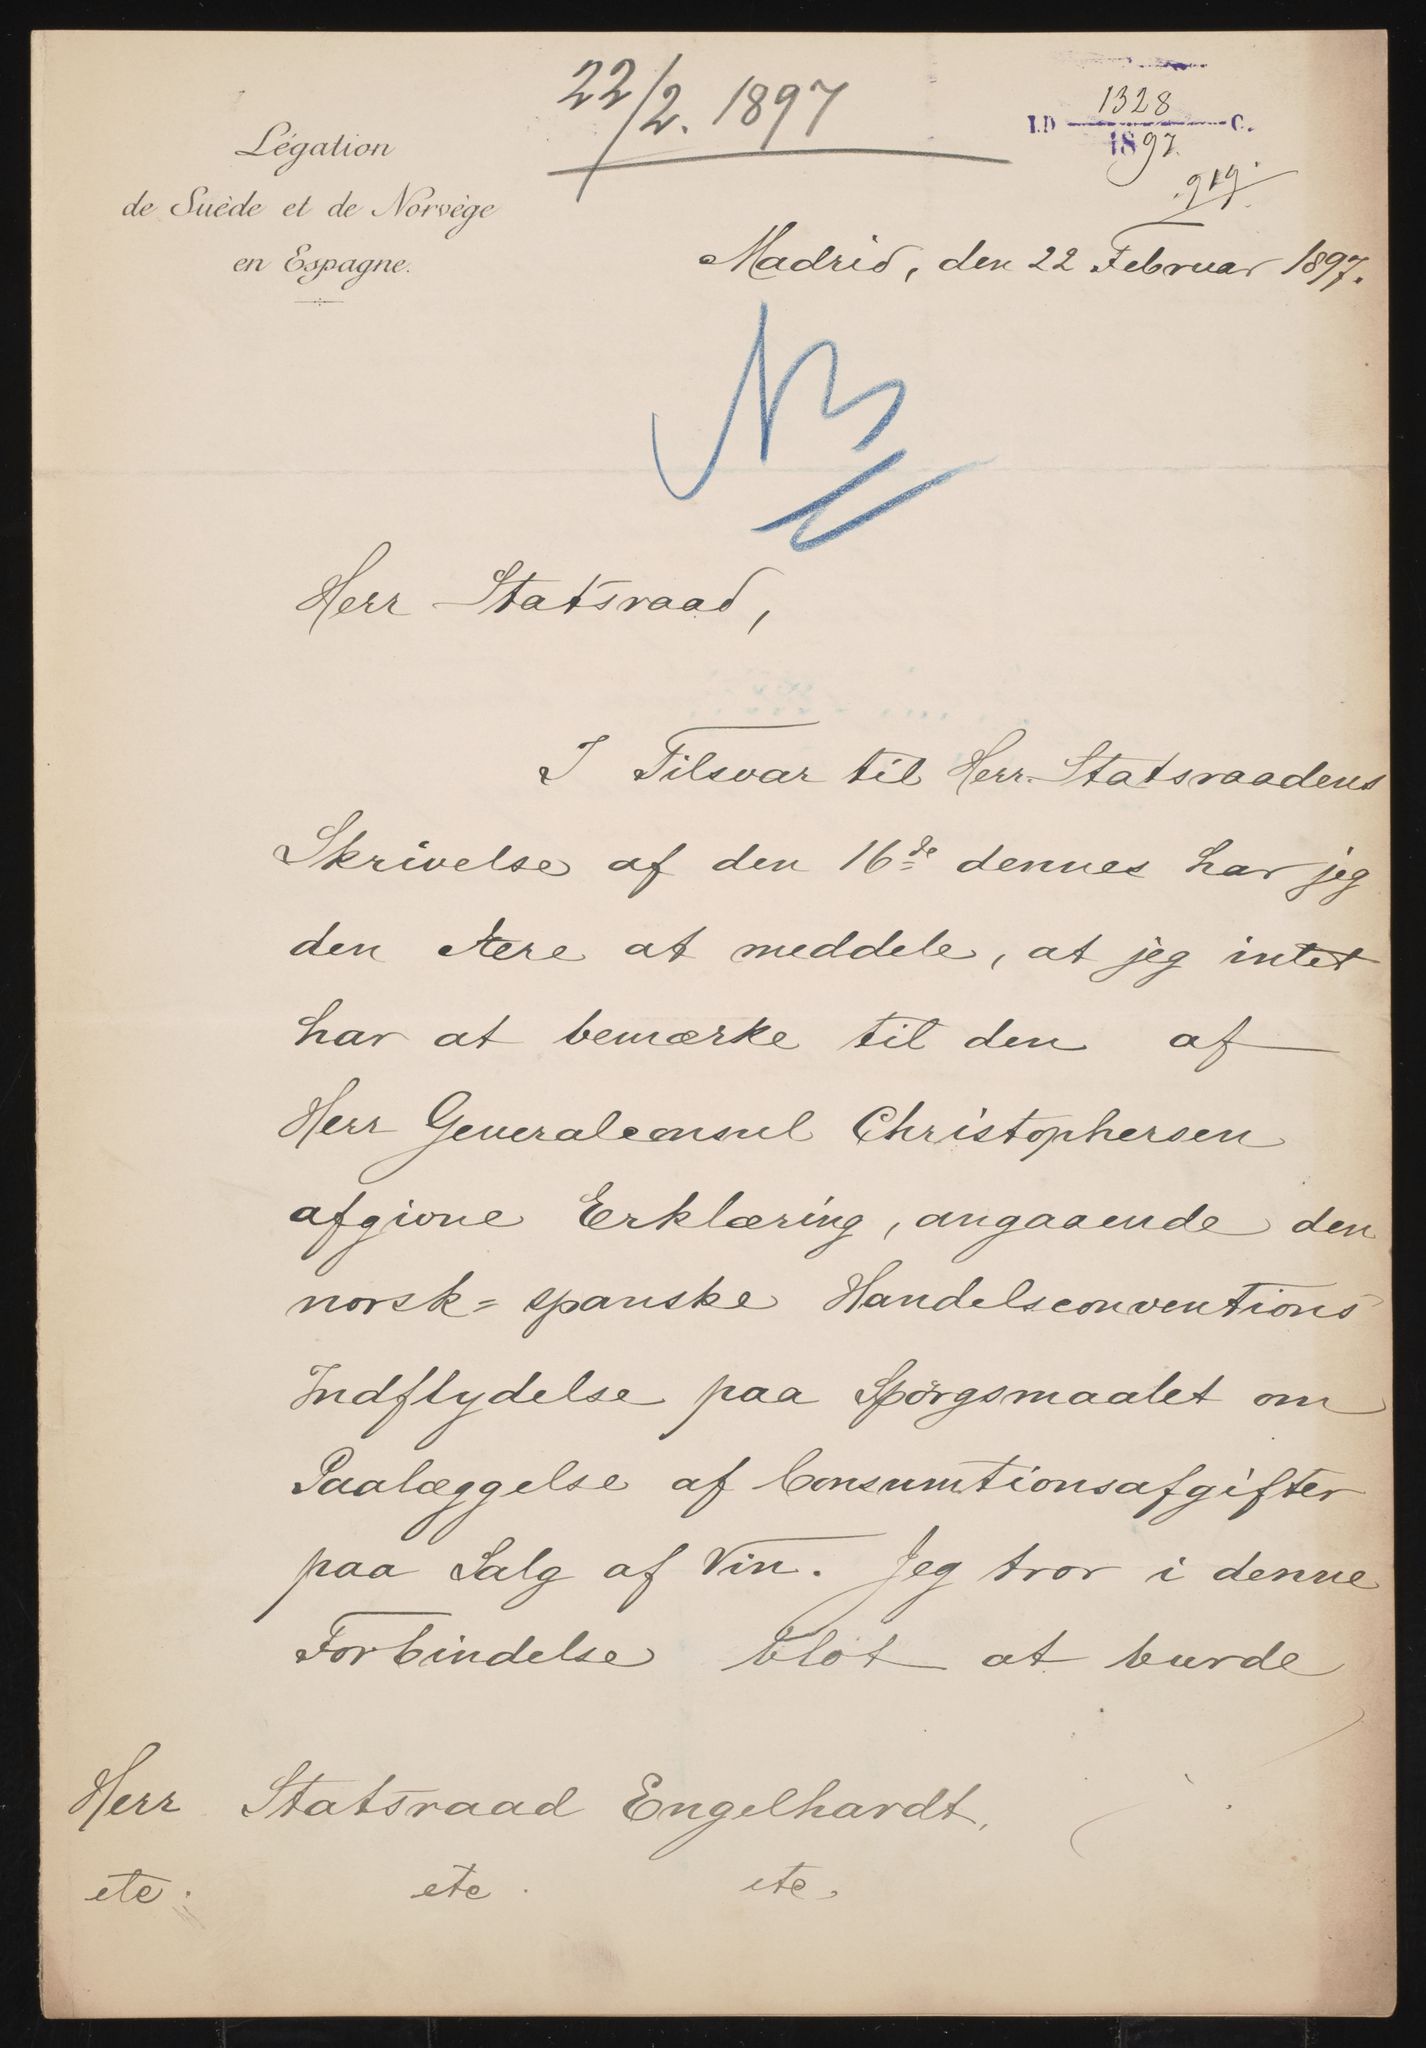 22/2. 1897
1328
I.D C.
1897.
Légation
de Suède et de Norvège
en Espagne.
Madrid, den 22 Februar 1897.
NB
Herr Statsraad,
I Tilsvar til Herr Statsraadens
Skrivelse af den 16de dennes har jeg
den Aere at meddele, at jeg intet
har at bemærke til den af
Herr Generalconsul Christophersen
afgivne Erklæring, angaaende den
norsk=spanske Handelsconventions
Indflydelse paa Spörgsmaalet om
Paalæggelse af Consumtionsafgifter
paa Salg af Vin. Jeg tror i denne
Forbindelse blot at burde
Herr Statsraad Engelhardt,
etc. etc. etc.